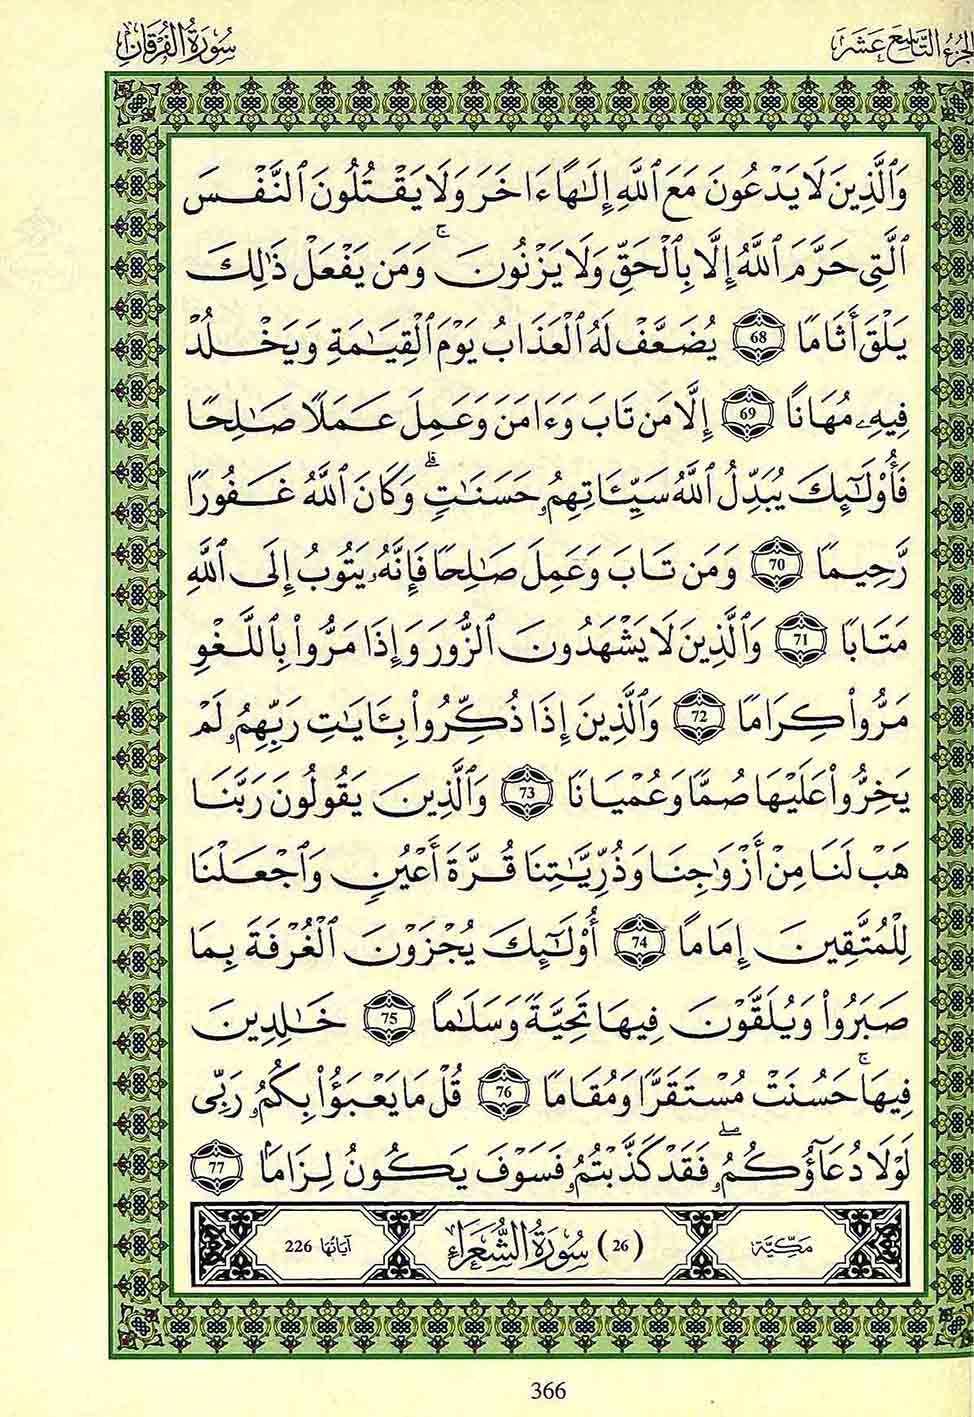 الجزء التاسع عشر
سورة الفرقان
وَٱلَّذِينَ لَا يَدْعُونَ مَعَ ٱللَّهِ إِلَٰهًا ءَاخَرَ وَلَا يَقْتُلُونَ ٱلنَّفْسَ
ٱلَّتِى حَرَّمَ ٱللَّهُ إِلَّا بِٱلْحَقِّ وَلَا يَزْنُونَ ۚ وَمَن يَفْعَلْ ذَٰلِكَ
يَلْقَ أَثَامًا 68 يُضَعَّفْ لَهُ ٱلْعَذَابُ يَوْمَ ٱلْقِيَٰمَةِ وَيَخْلُدْ
فِيهِۦ مُهَانًا 69 إِلَّا مَن تَابَ وَءَامَنَ وَعَمِلَ عَمَلًا صَٰلِحًا
فَأُو۟لَٰٓئِكَ يُبَدِّلُ ٱللَّهُ سَيِّـَٔاتِهِمُۥ حَسَنَٰتٍ ۗ وَكَانَ ٱللَّهُ غَفُورًا
رَّحِيمًا 70 وَمَن تَابَ وَعَمِلَ صَٰلِحًا فَإِنَّهُۥ يَتُوبُ إِلَى ٱللَّهِ
مَتَابًا 71 وَٱلَّذِينَ لَا يَشْهَدُونَ ٱلزُّورَ وَإِذَا مَرُّوا۟ بِٱللَّغْوِ
مَرُّوا۟ كِرَامًا 72 وَٱلَّذِينَ إِذَا ذُكِّرُوا۟ بِـَٔايَٰتِ رَبِّهِمُۥ لَمْ
يَخِرُّوا۟ عَلَيْهَا صُمًّا وَعُمْيَانًا 73 وَٱلَّذِينَ يَقُولُونَ رَبَّنَا
هَبْ لَنَا مِنْ أَزْوَٰجِنَا وَذُرِّيَّٰتِنَا قُرَّةَ أَعْيُنٍ وَٱجْعَلْنَا
لِلْمُتَّقِينَ إِمَامًا 74 أُو۟لَٰٓئِكَ يُجْزَوْنَ ٱلْغُرْفَةَ بِمَا
صَبَرُوا۟ وَيُلَقَّوْنَ فِيهَا تَحِيَّةً وَسَلَٰمًا 75 خَٰلِدِينَ
فِيهَا ۚ حَسُنَتْ مُسْتَقَرًّا وَمُقَامًا 76 قُلْ مَا يَعْبَؤُا۟ بِكُمُۥ رَبِّى
لَوْلَا دُعَآؤُكُمُۥ ۖ فَقَدْ كَذَّبْتُمُۥ فَسَوْفَ يَكُونُ لِزَامًۢا 77
مكية (26) سورة الشعراء آياتها 226
366